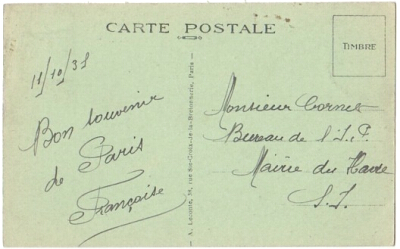 CARTE POSTALE
TIMBRE
11/10/37
Bon souvenir
de Paris
Françoise
Monsieur Cornet
Bureau de l'I.P.
Mairie du Havre
S.I.
A. Leconte, 38, rue Ste-Croix-de-la-Bretonnerie, Paris